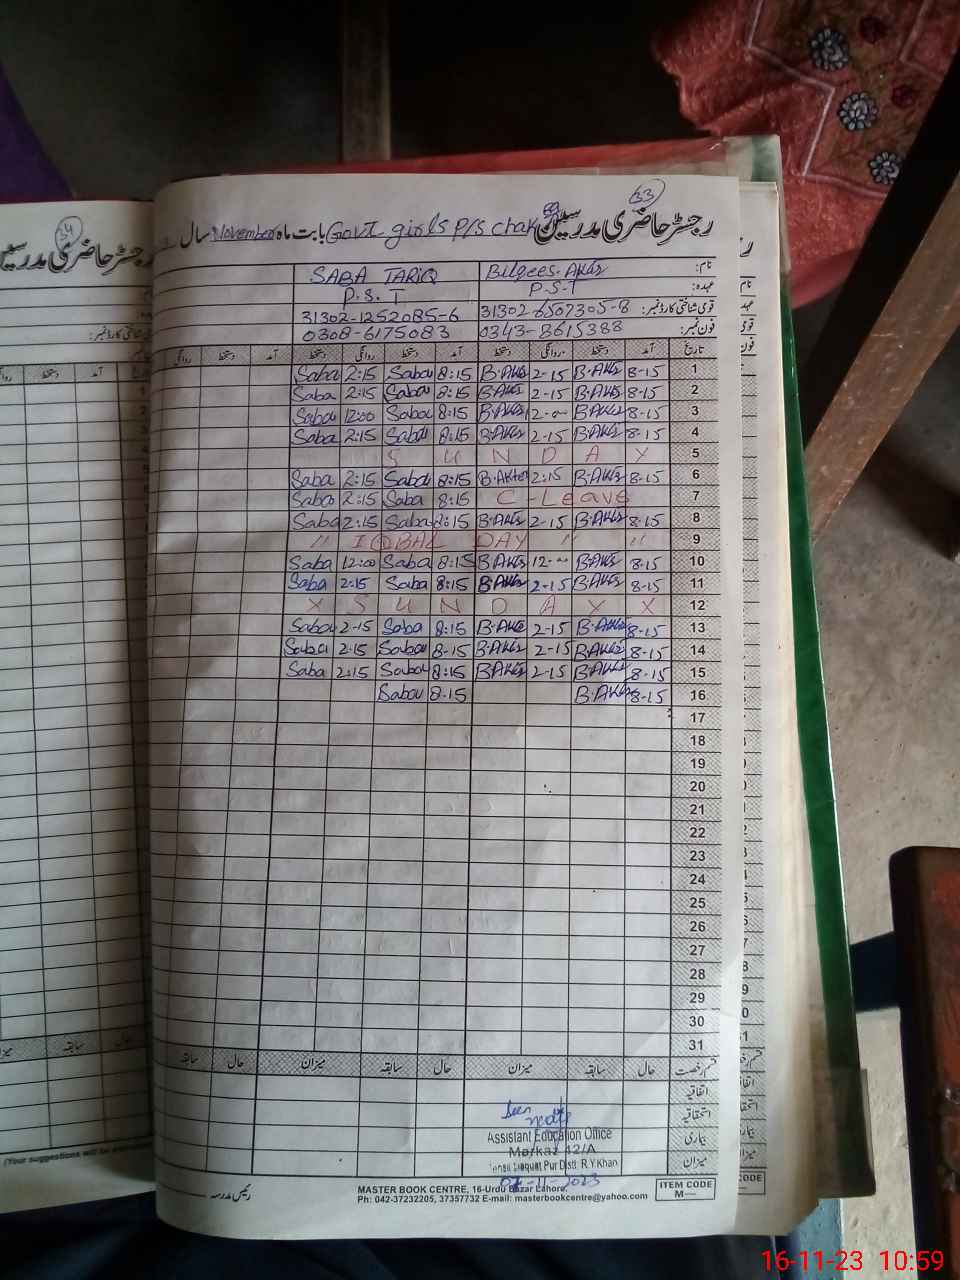 33
رجسٹر حاضری مدرسین Govt girls P/S chak بابت ماہ November سال
نام: Bilqees. Akhtr SABA TARIQ
عہدہ: P.S.T P.S.T
قومی شناختی کارڈ نمبر: 31302-6507305-8 31302-1252085-6
فون نمبر: 0343-8615388 0308-6175083
تاریخ آمد دستخط روانگی دستخط آمد دستخط روانگی دستخط آمد دستخط روانگی
1 8-15 B.Akhtr 2-15 B.Akhtr 8:15 Saba 2:15 Saba
2 8-15 B.Akhtr 2-15 B.Akhtr 8:15 Saba 2:15 Saba
3 8-15 B.Akhtr 12-00 B.Akhtr 8:15 Saba 12:00 Saba
4 8-15 B.Akhtr 2-15 B.Akhtr 8:15 Saba 2:15 Saba
5 S U N D A Y
6 8-15 B.Akhtr 2:15 B.Akhtr 8:15 Saba 2:15 Saba
7 C-Leave 8:15 Saba 2:15 Saba
8 8-15 B.Akhtr 2-15 B.Akhtr 8:15 Saba 2:15 Saba
9 " IQBAL DAY " "
10 8-15 B.Akhtr 12-00 B.Akhtr 8:15 Saba 12:00 Saba
11 8-15 B.Akhtr 2-15 B.Akhtr 8:15 Saba 2:15 Saba
12 X S U N D A Y X
13 8-15 B.Akhtr 2-15 B.Akhtr 8:15 Saba 2-15 Saba
14 8-15 B.Akhtr 2-15 B.Akhtr 8-15 Saba 2.15 Saba
15 8-15 B.Akhtr 2-15 B.Akhtr 8:15 Saba 2:15 Saba
16 8-15 B.Akhtr 8:15 Saba
17
18
19
20
21
22
23
24
25
26
27
28
29
30
31
قسم رخصت حال سابقہ میزان حال سابقہ میزان حال سابقہ
اتفاقیہ
استحقاقیہ
بیماری
میزان
Seen
Assistant Education Office
Markaz 42/A
Liaquat Pur Distt R.Y.Khan
07-11-2023
رئیس مدرسہ
MASTER BOOK CENTRE, 16-Urdu Bazar Lahore.
Ph: 042-37232205, 37357732 E-mail: masterbookcentre@yahoo.com
ITEM CODE
M—
34
رجسٹر حاضری مدرسین
(Your suggestions will be
16-11-23 10:59